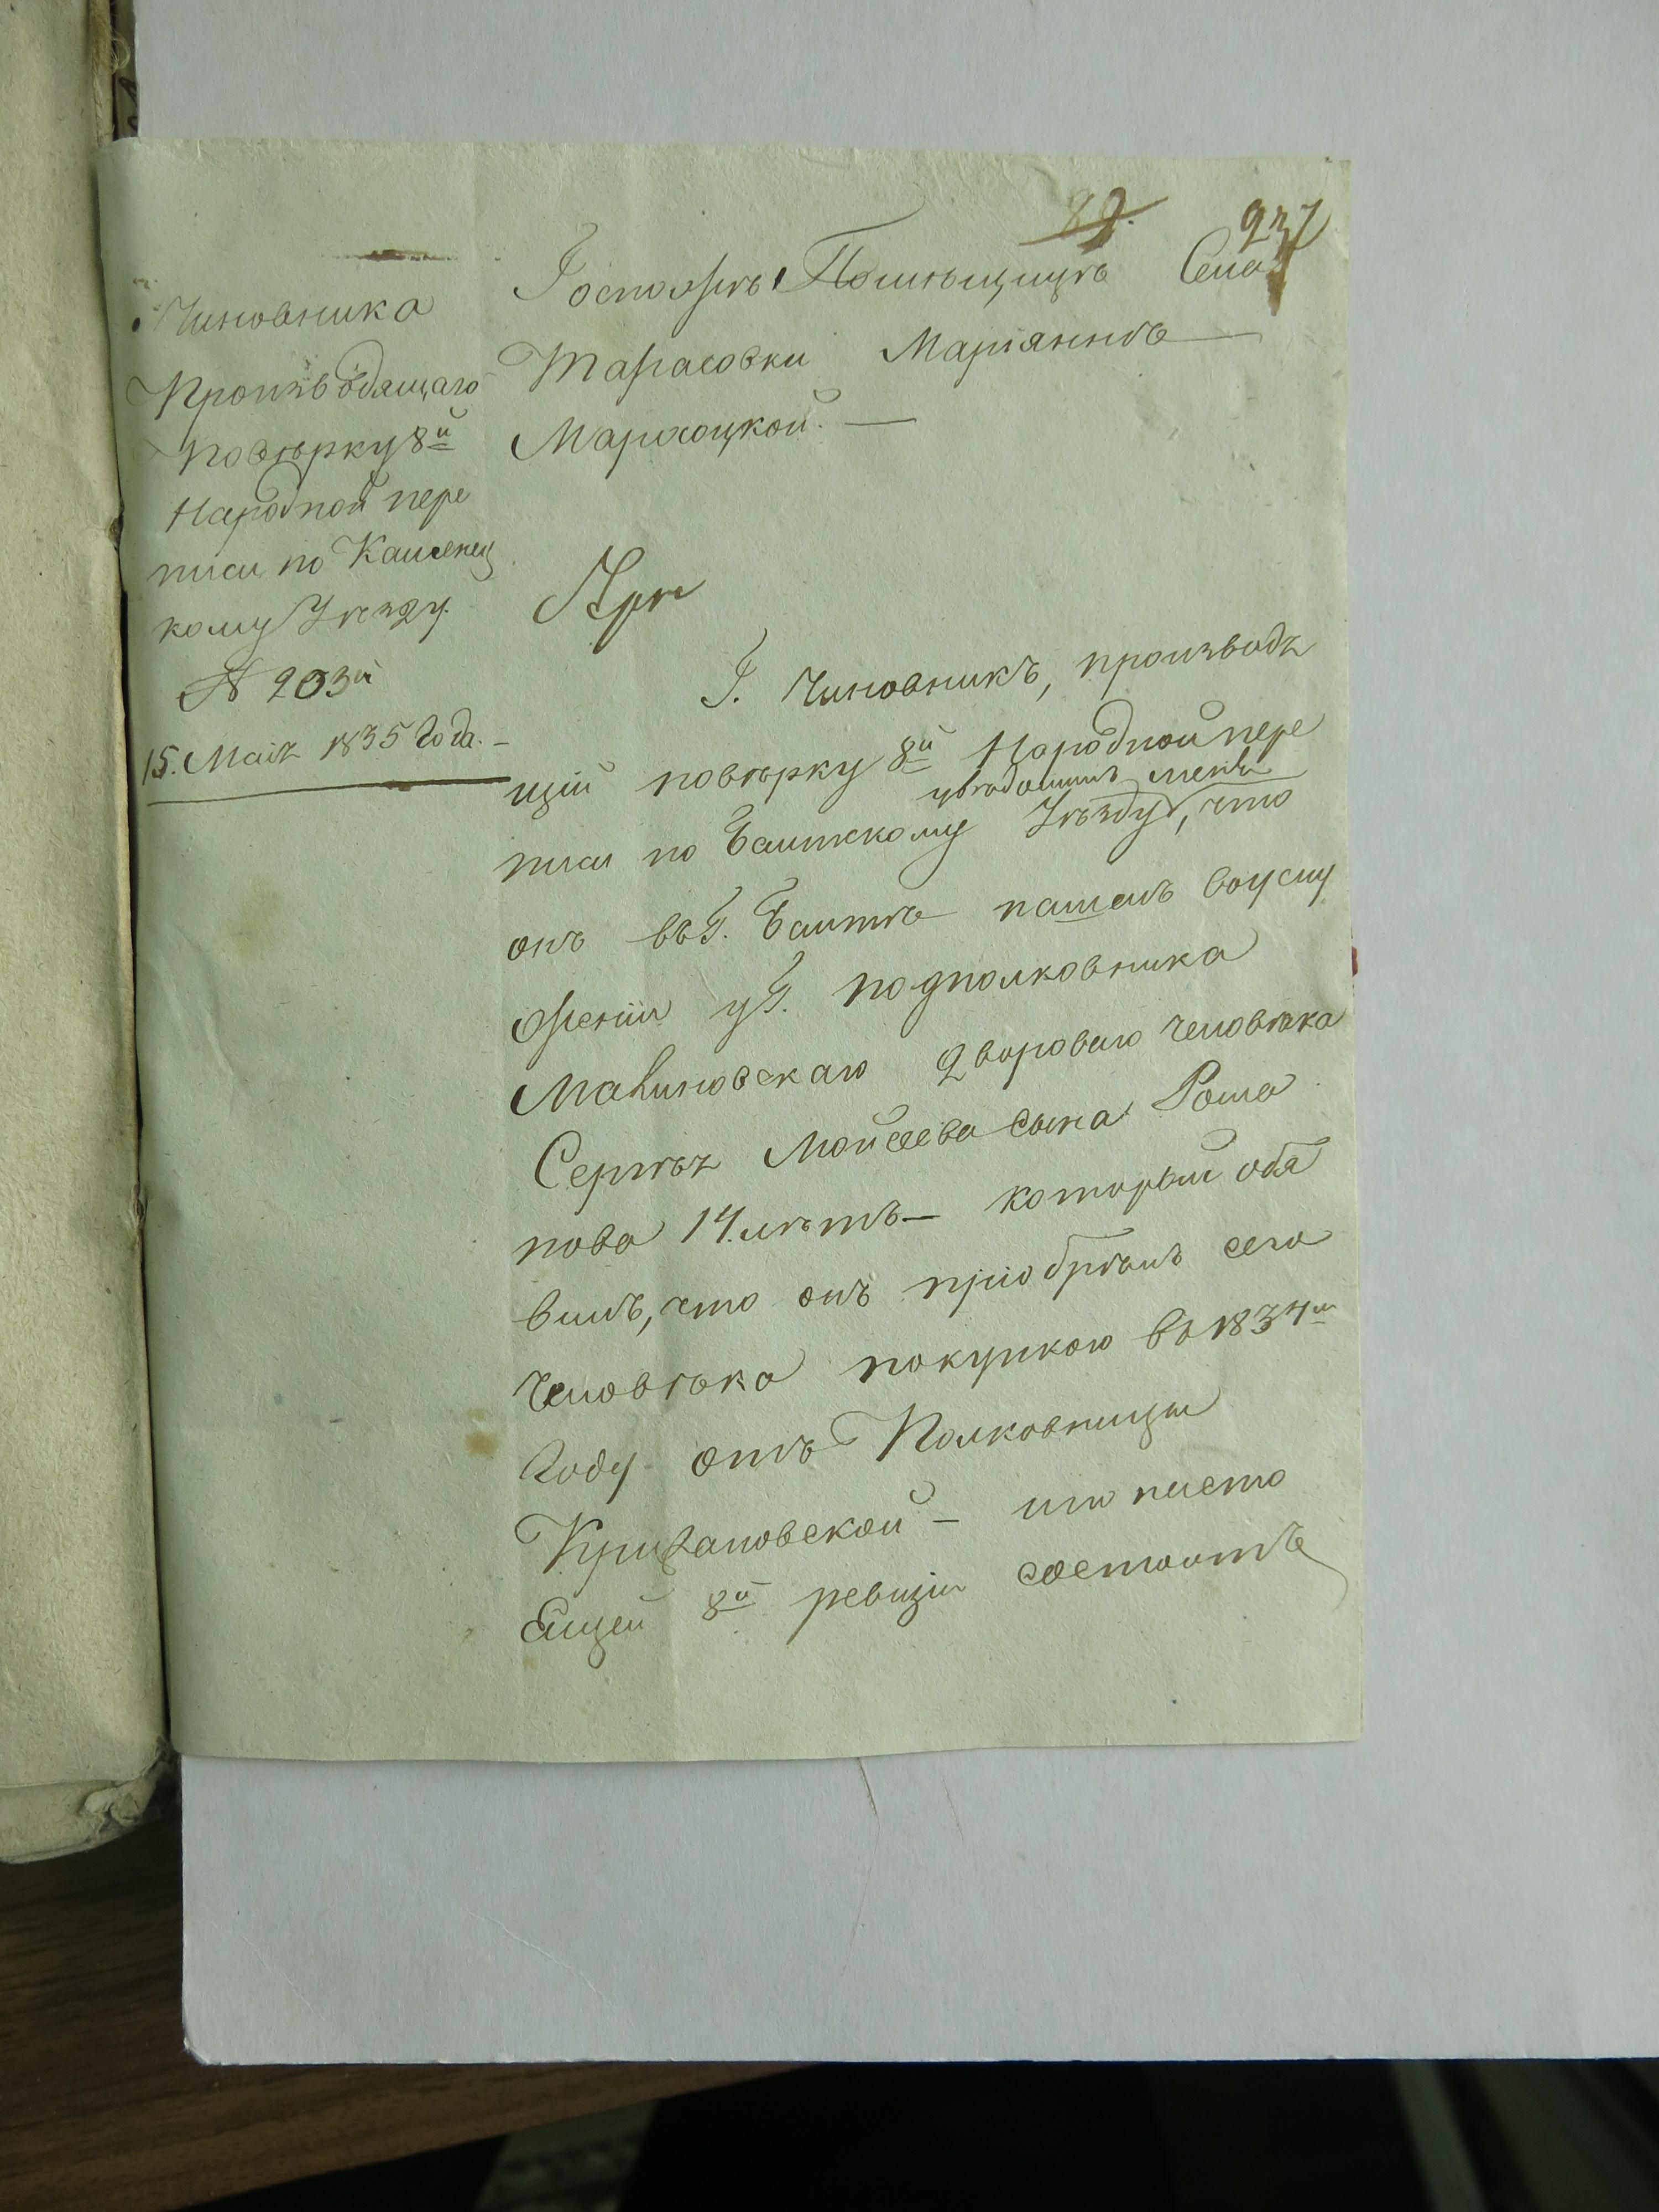 82. 237
Чиновника
Производящаго
Повѣрку 8й
Народной пере
писи по Каменец
кому Уѣзду.
№ 203й
15. Маія 1835 Года. —
Госпожѣ Помѣщицѣ Села
Тарасовки Маріяннѣ —
Мархоцкой. —
Г. Чиновникъ, производя
щій повѣрку 8й Народной пере
увѣдомилъ меня
писи по Балтскому Уѣзду, что
онъ въ Г. Балтѣ нашелъ воуслу
женіи у Г. подполковника
Малиновскаго двороваго человѣка
Сергѣя Мойсеева сына Рома
нова 14. лѣтъ — который объя
вилъ, что онъ пріобрѣлъ сего
человѣка покупкою въ 1834м
Году отъ Полковницы
Крижановской — и по насто
Ящей 8й ревизіи состоитъ